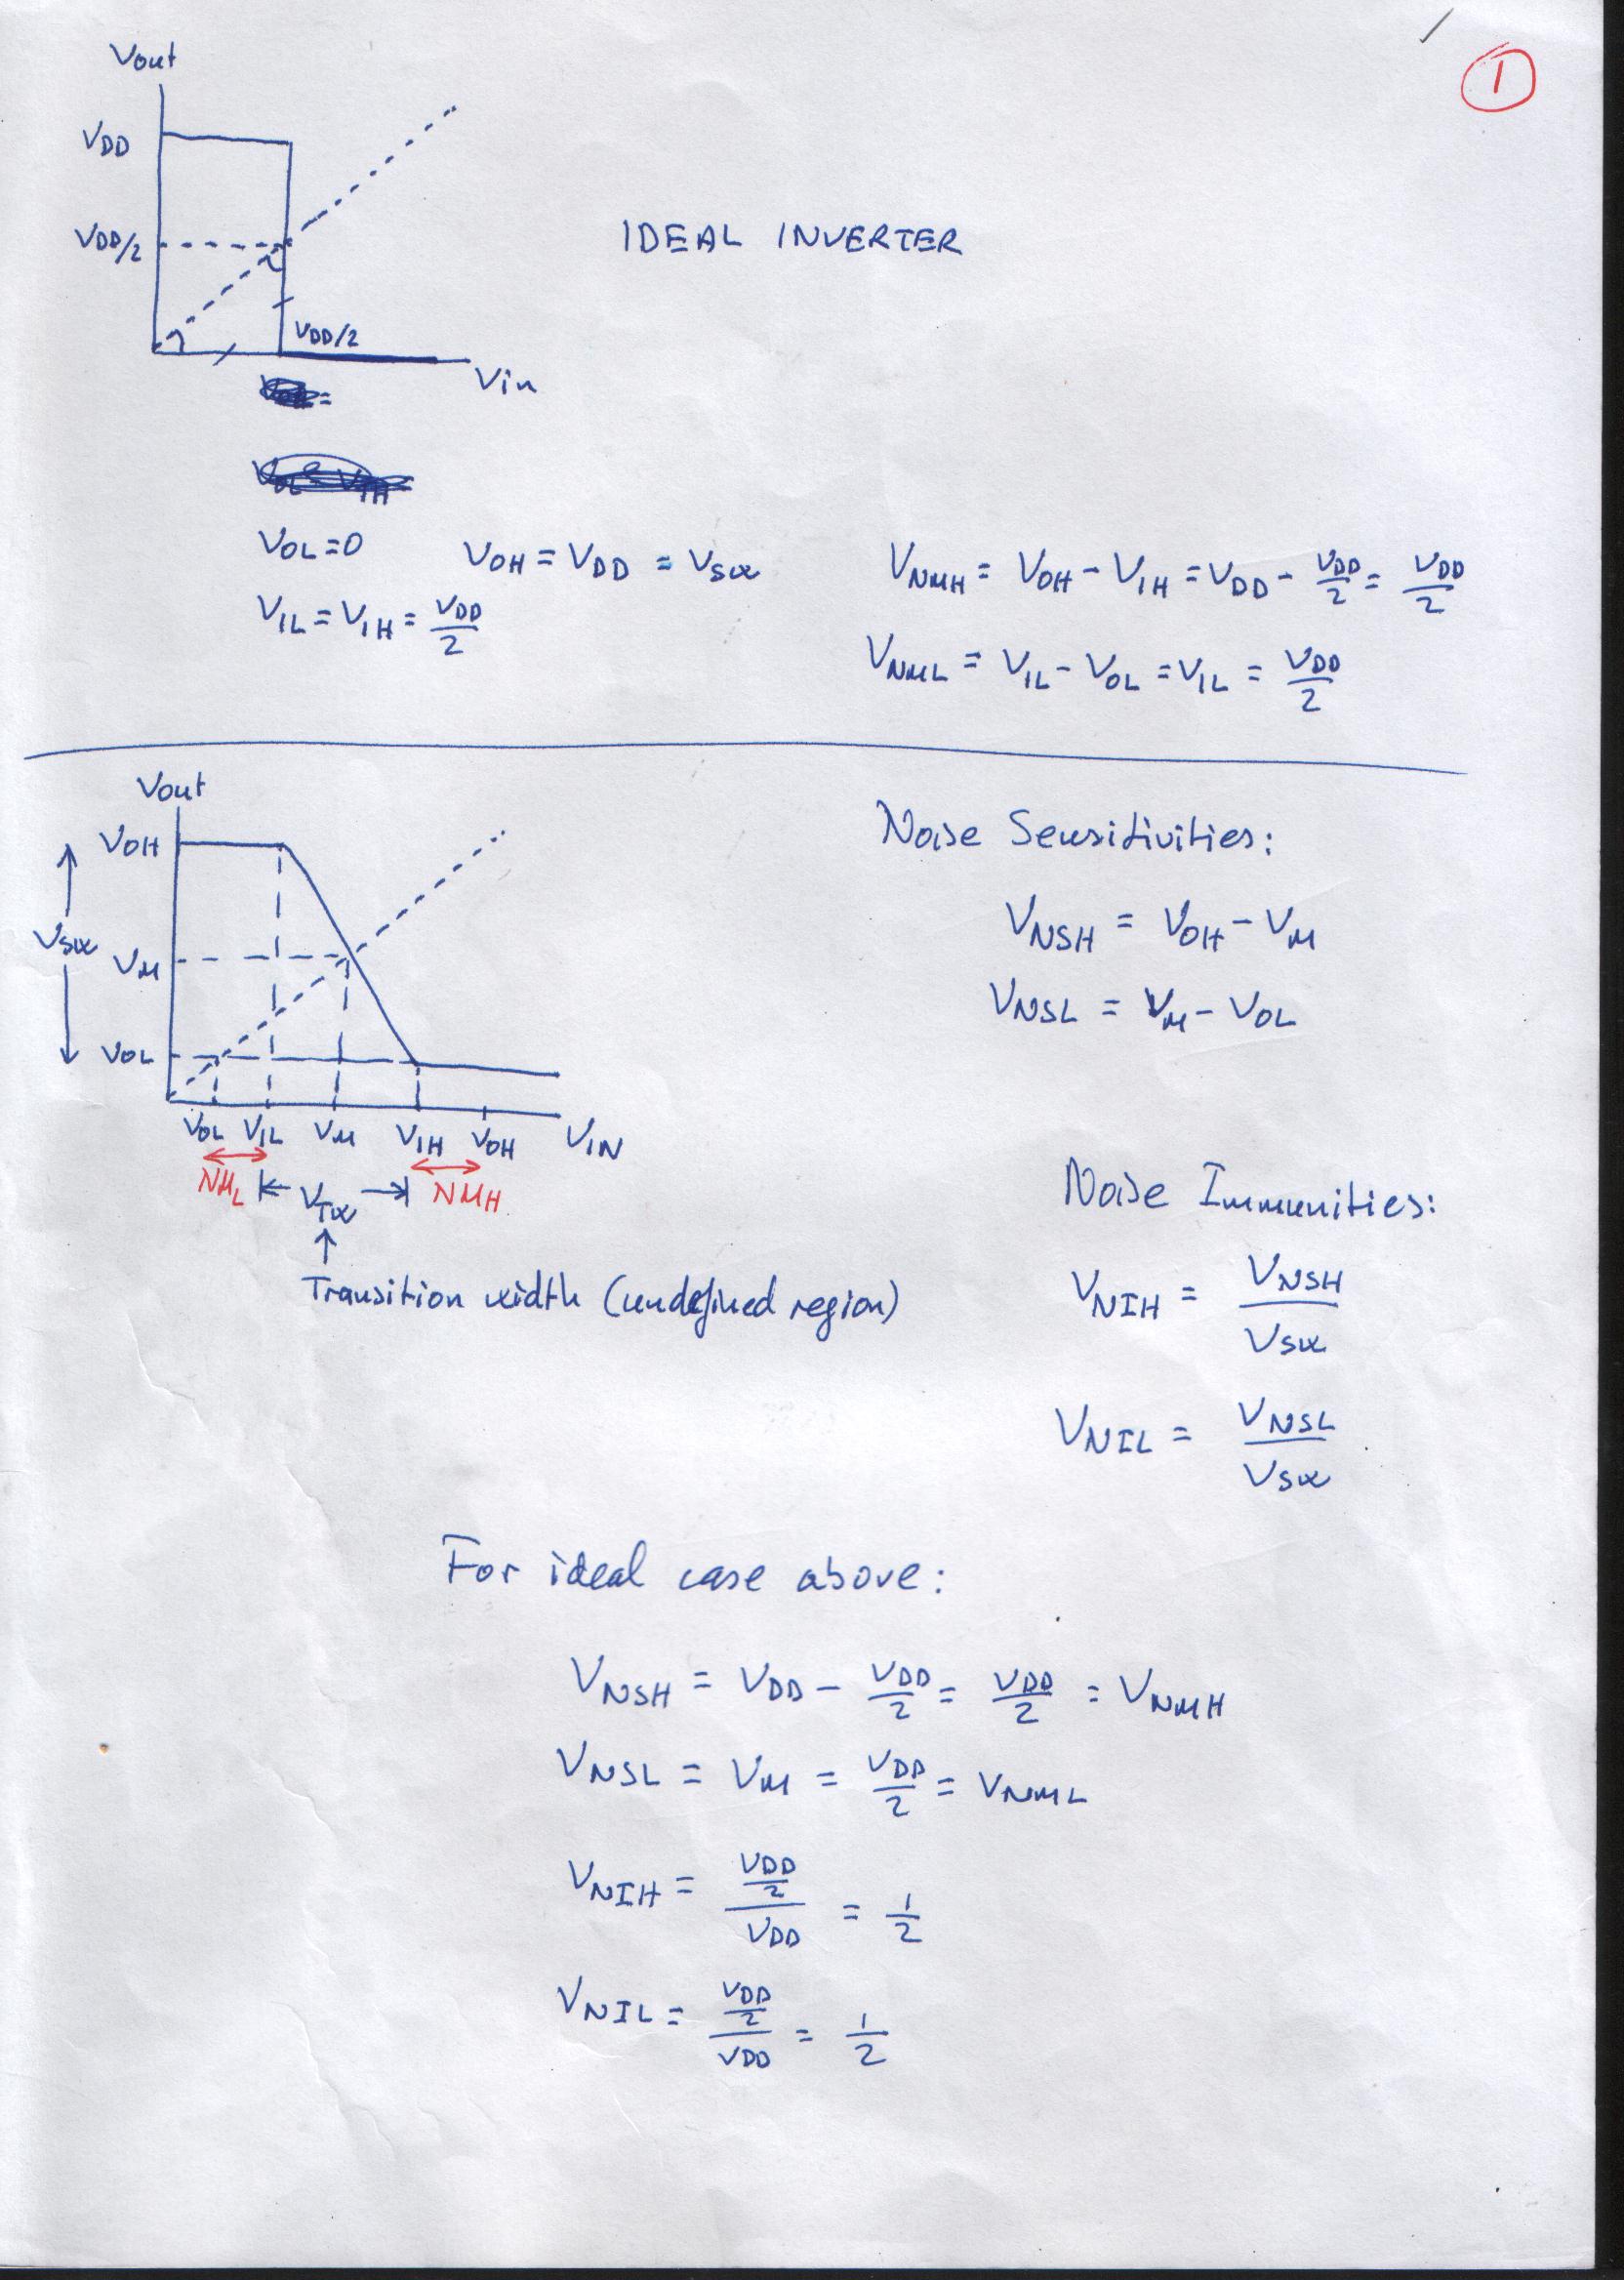 1
Vout
VDD
VDD/2
IDEAL INVERTER
VDD/2
Vin
VOL=0 VOH = VDD = Vsw
VIL = VIH = VDD/2
VNMH = VOH - VIH = VDD - VDD/2 = VDD/2
VNML = VIL - VOL = VIL = VDD/2
Vout
VOH
Vsw
VM
VOL
VOL VIL VM VIH VOH VIN
NML VTW NMH
Transition width (undefined region)
Noise Sensitivities:
VNSH = VOH - VM
VNSL = VM - VOL
Noise Immunities:
VNIH = VNSH/Vsw
VNIL = VNSL/Vsw
For ideal case above:
VNSH = VDD - VDD/2 = VDD/2 = VNMH
VNSL = VM = VDD/2 = VNML
VNIH = VDD/2/VDD = 1/2
VNIL = VDD/2/VDD = 1/2